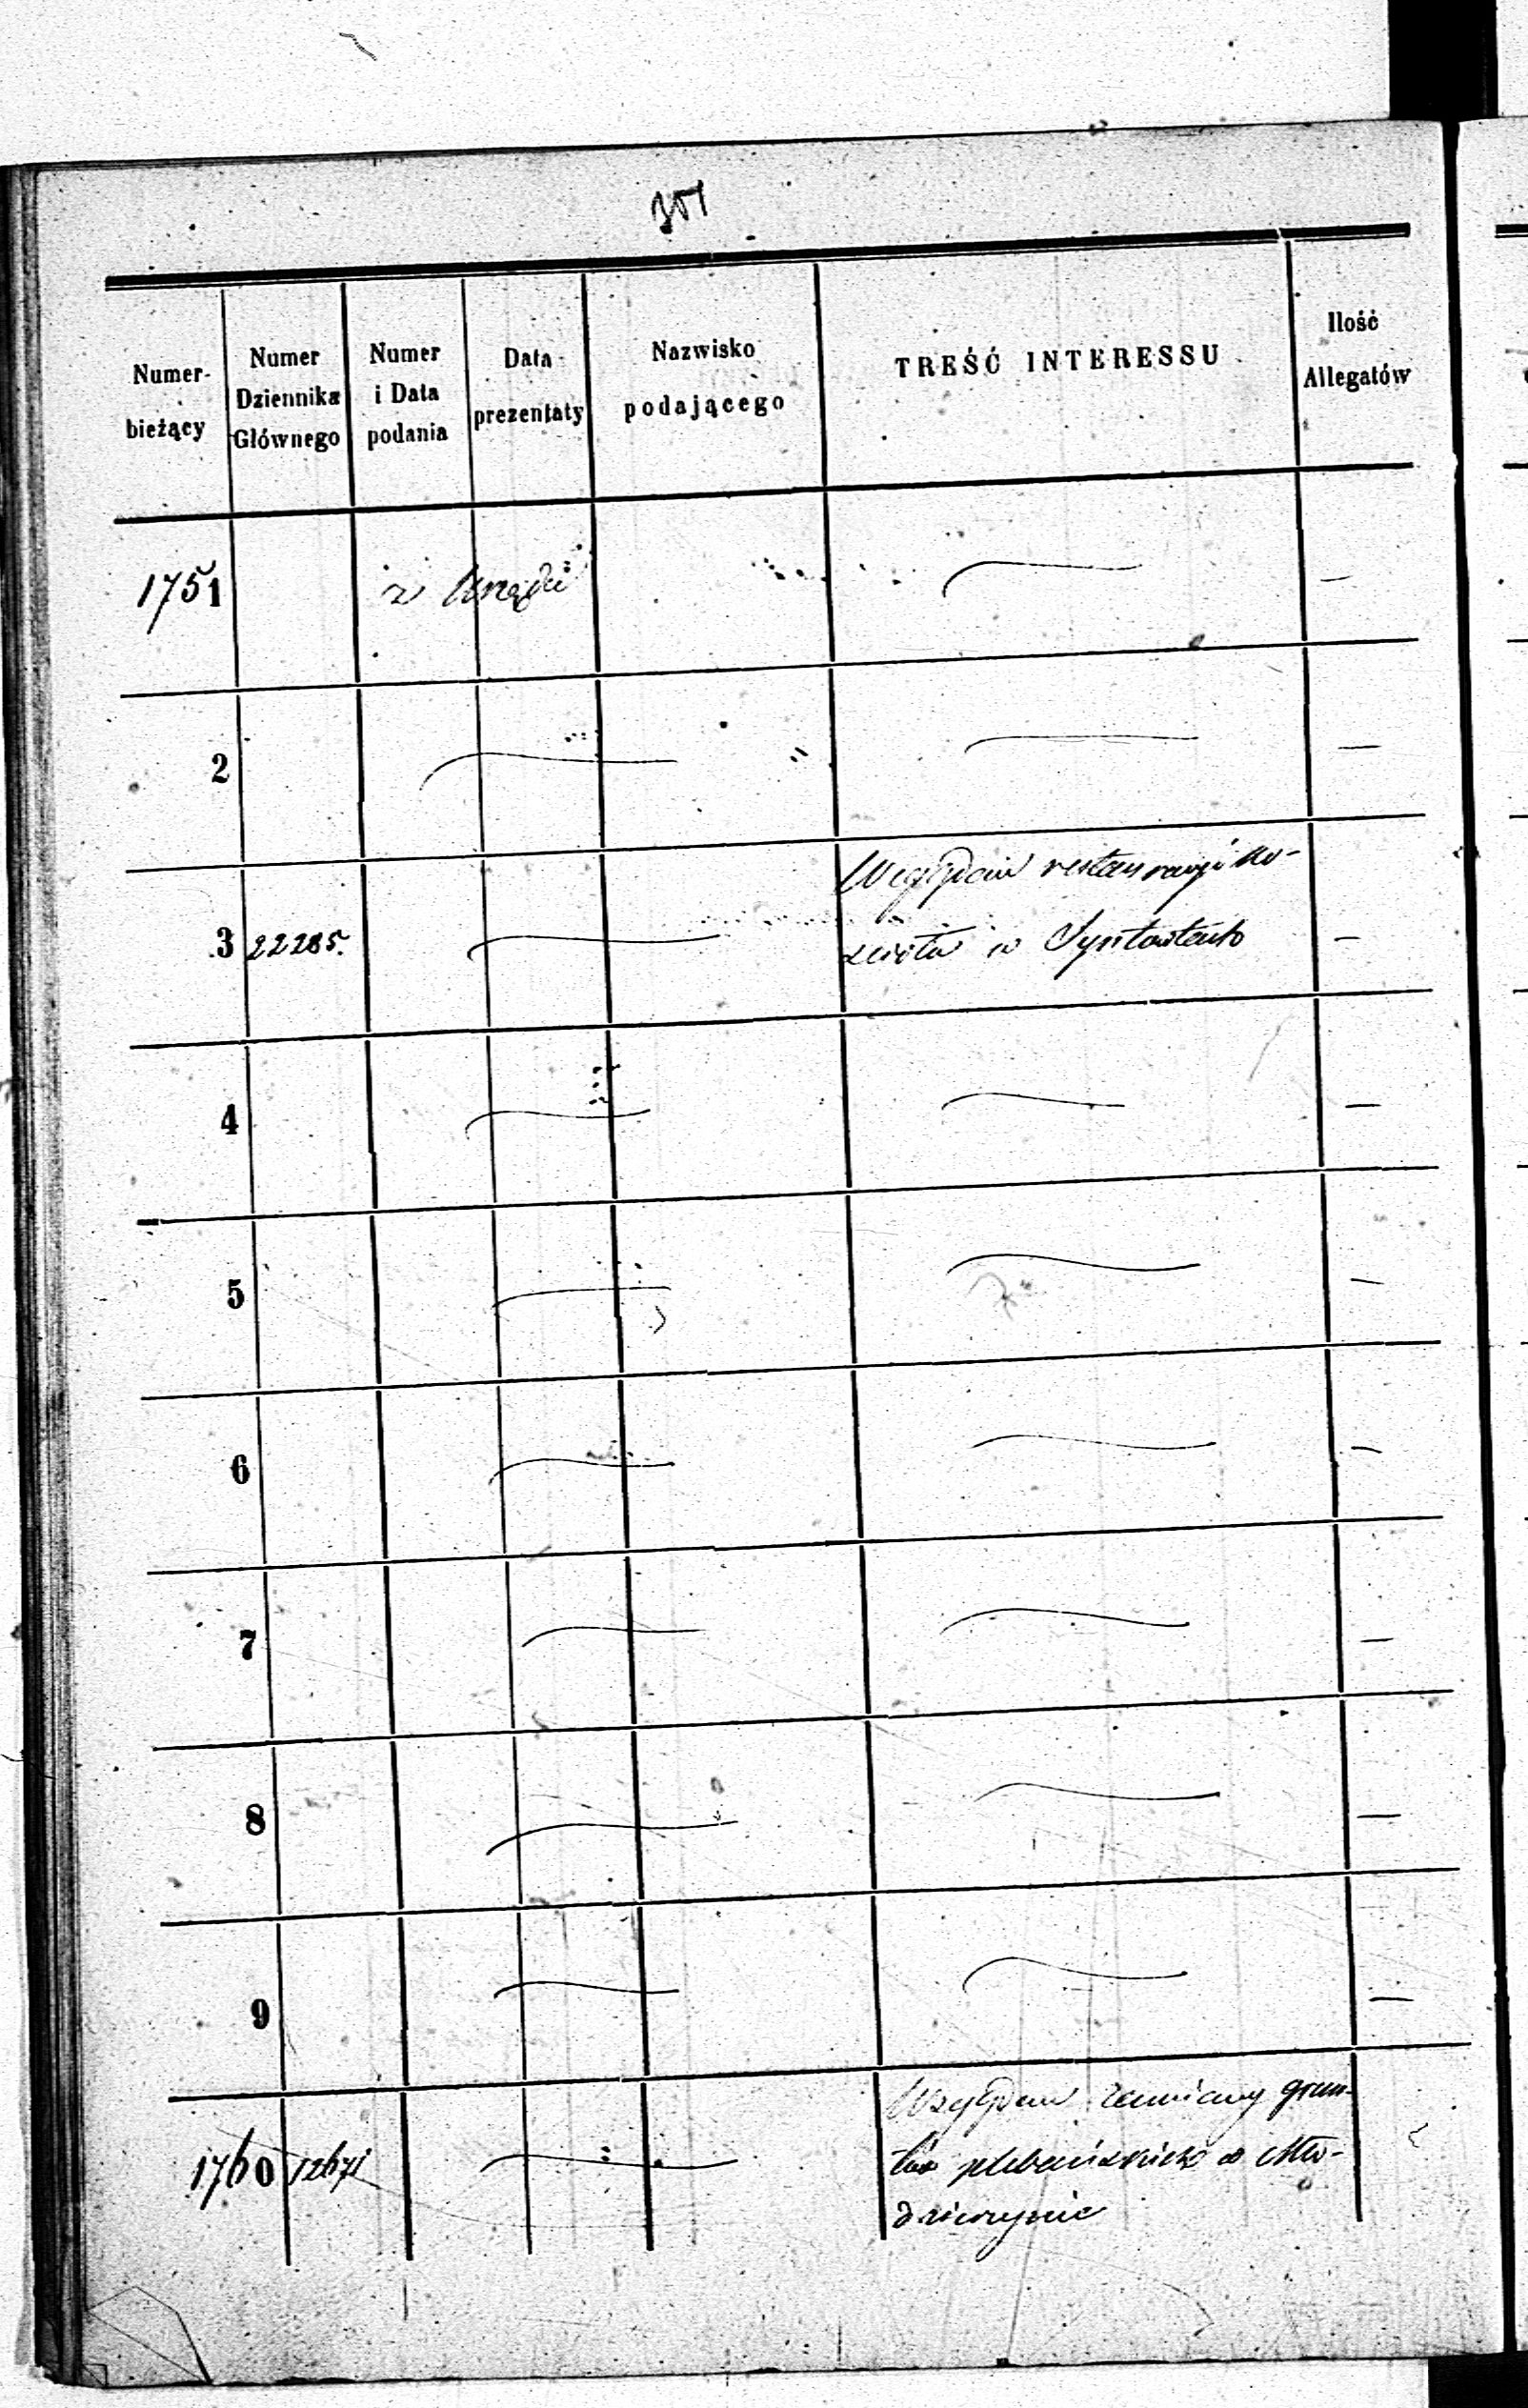 351
Numer bieżący | Numer Dziennika Głównego | Numer i Data podania | Data prezentaty | Nazwisko podającego | TREŚĆ INTERESSU | Ilość Allegatów
1751 z Urzędu —
2 —
Względem restauracyi ko-
3 22285. ścioła w Syntowtach —
4 —
5 —
6 —
7 —
8 —
9 —
Względem zamiany grun-
1760 12671 tów plebańskich w
dzierzynie